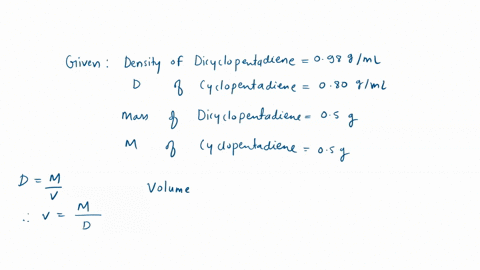 Given: Density of Dicyclopentadiene = 0.98 g/mL
D of Cyclopentadiene = 0.80 g/mL
Mass of Dicyclopentadiene = 0.5 g
M of Cyclopentadiene = 0.5 g
D = M/V
Volume
∴ V = M/D